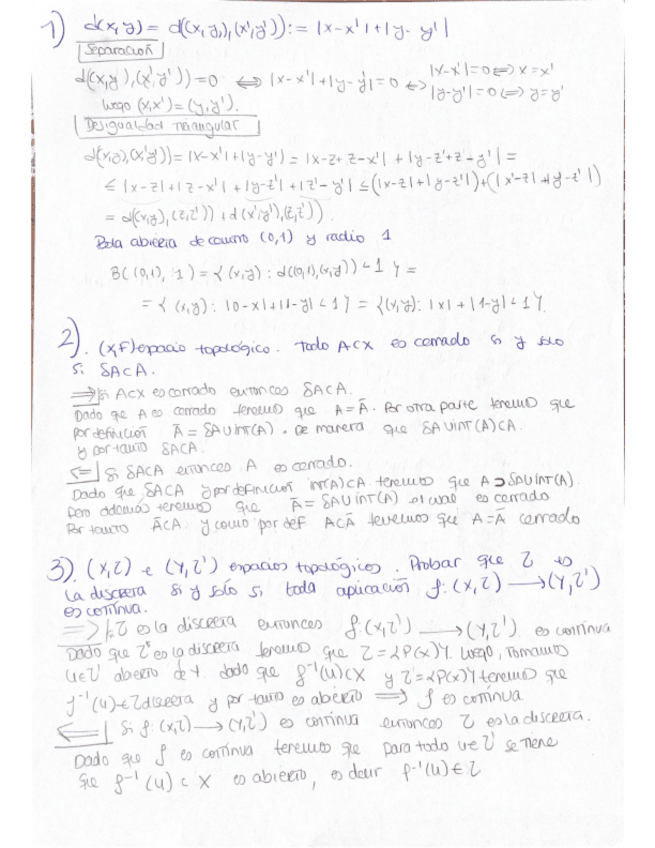 1) d(x,y) = d((x,y),(x',y')) := |x-x'|+|y-y'|
Separación
d((x,y),(x',y'))=0 ⟺ |x-x'|+|y-y'|=0 ⟺ |x-x'|=0 ⟺ x=x'
|y-y'|=0 ⟺ y=y'
luego (x,x')=(y,y').
Desigualdad triangular
d((x,y),(x',y'))=|x-x'|+|y-y'| = |x-z+z-x'| + |y-z'+z'-y'| =
≤ |x-z|+|z-x'| + |y-z'|+|z'-y'| ≤ (|x-z|+|y-z'|)+(|x'-z|+|y-z'|)
= d((x,y),(z,z')) + d((x',y'),(z,z')).
Bola abierta de centro (0,1) y radio 1
B((0,1), 1) = { (x,y) : d((0,1),(x,y)) < 1 } =
= { (x,y): |0-x|+|1-y| < 1 } = {(x,y): |x| + |1-y| < 1 }.
2). (X,F) espacio topológico. Todo A⊂X es cerrado si y solo
si δA⊂A.
⟹| Si A⊂X es cerrado entonces δA⊂A.
Dado que A es cerrado tenemos que A=Ā. Por otra parte tenemos que
por definición Ā = δA∪int(A). De manera que δA∪int(A)⊂A.
y por tanto δA⊂A.
⟸| Si δA⊂A entonces A es cerrado.
Dado que δA⊂A y por definición int(A)⊂A tenemos que A⊃δA∪int(A).
Pero además tenemos que Ā = δA∪int(A) el cual es cerrado
Por tanto Ā⊂A y como por def A⊂Ā tenemos que A=Ā cerrado
3). (X,τ) e (Y,τ') espacios topológicos. Probar que τ es
la discreta si y sólo si toda aplicación f: (X,τ) ⟶ (Y,τ')
es continua.
⟹| τ es la discreta entonces f:(X,τ') ⟶ (Y,τ') es continua
Dado que τ es la discreta tenemos que τ = {P(X)}. Luego, tomamos
u∈τ' abierto de Y. dado que f⁻¹(u)⊂X y τ = {P(X)} tenemos que
f⁻¹(u)∈τ discreta y por tanto es abierto ⟹ f es continua
⟸| Si f:(X,τ) ⟶ (Y,τ') es continua entonces τ es la discreta.
Dado que f es continua tenemos que para todo u∈τ' se tiene
que f⁻¹(u) ⊂ X es abierto, es decir f⁻¹(u) ∈ τ